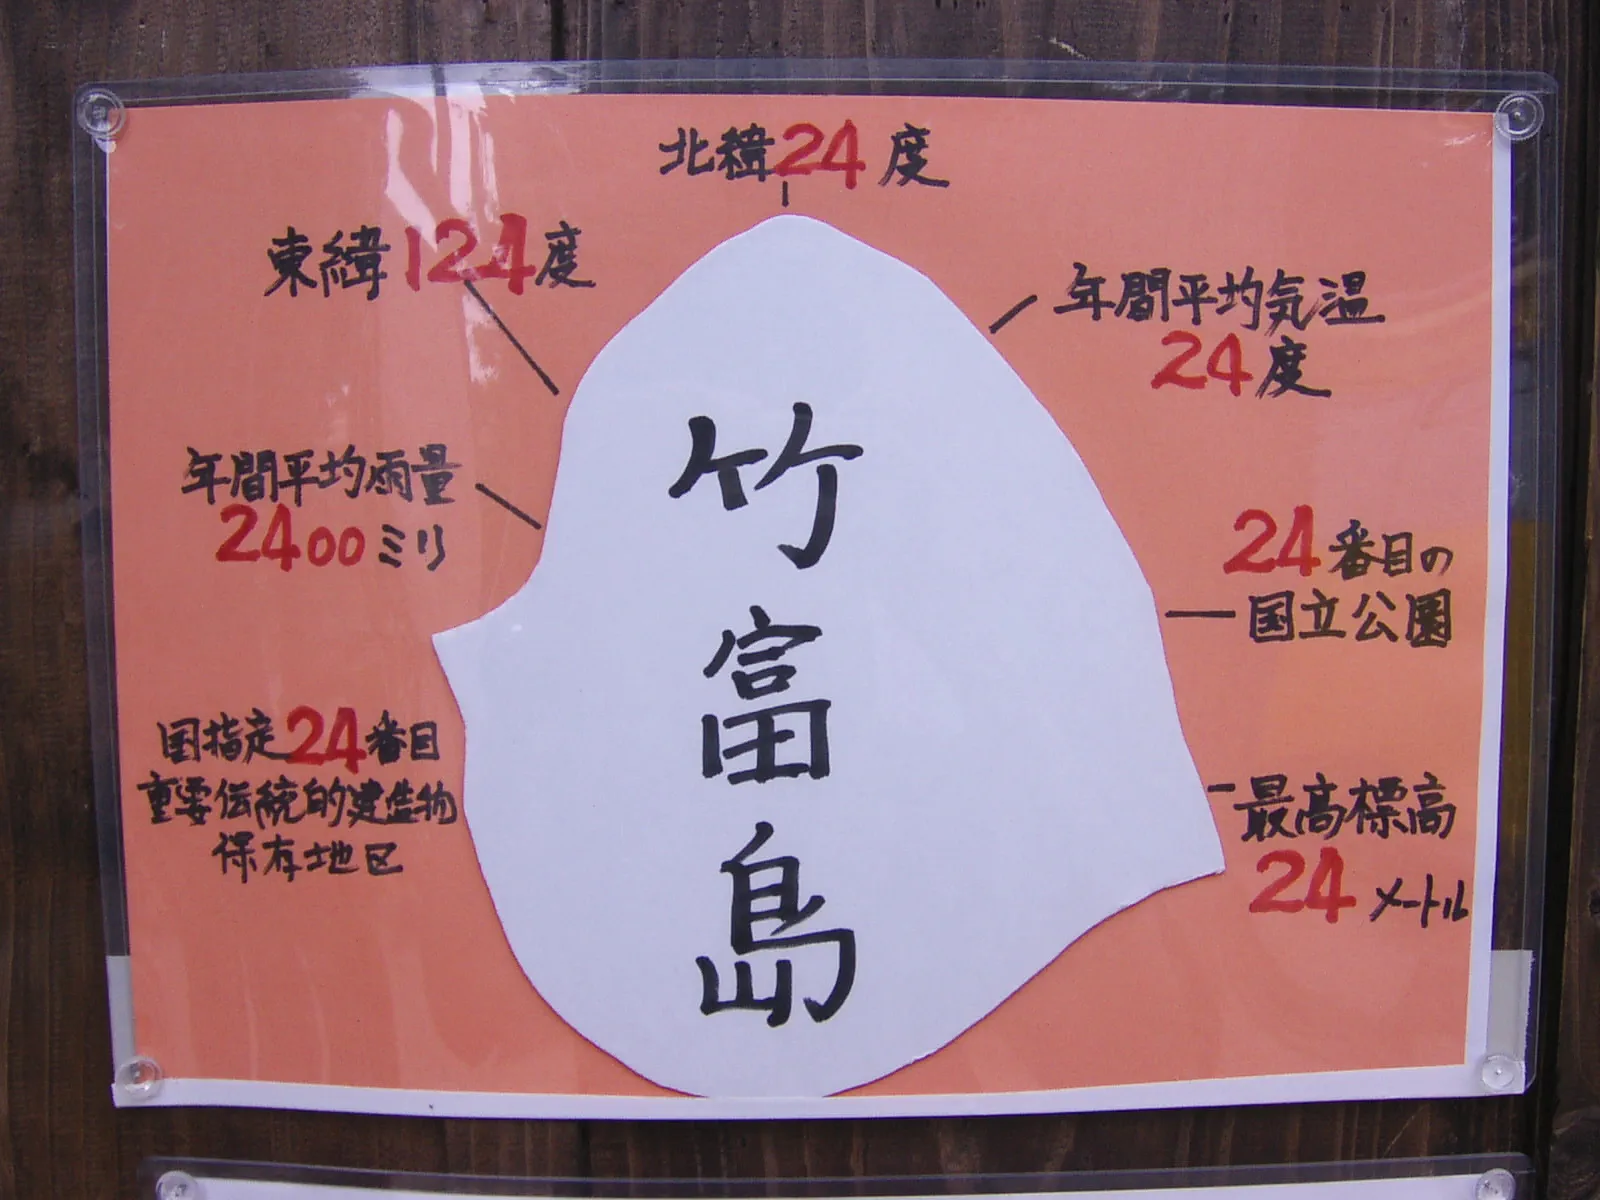 北緯24度
東緯124度
年間平均気温
24度
年間平均雨量
2400ミリ
24番目の
国立公園
国指定24番目
重要伝統的建造物
保存地区
最高標高
24メートル
竹富島